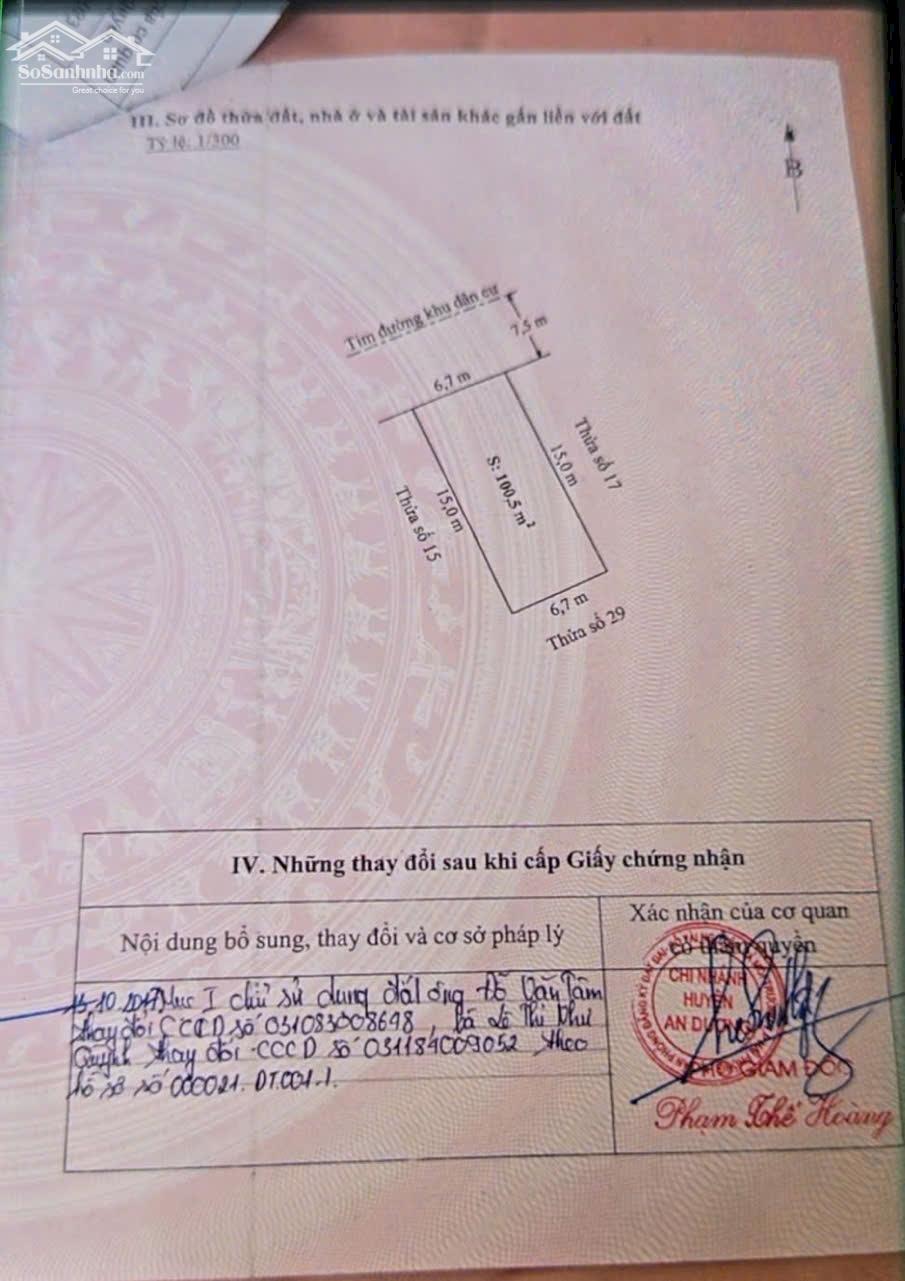 SoSanhnha.com
Great choice for you
III. Sơ đồ thửa đất, nhà ở và tài sản khác gắn liền với đất
Tỷ lệ: 1/300
B
Tim đường khu dân cư
7,5 m
6,7 m
Thửa số 17
15,0 m
S: 100,5 m²
15,0 m
Thửa số 15
6,7 m
Thửa số 29
IV. Những thay đổi sau khi cấp Giấy chứng nhận
Nội dung bổ sung, thay đổi và cơ sở pháp lý
Xác nhận của cơ quan
có thẩm quyền
Mục I chủ sử dụng đất ông Đỗ Văn Tâm
thay đổi CCCD số 031083008698, bà
Quỳnh thay đổi CCCD số 031184009052 theo
hồ sơ số 000021. DT.001-1.
CHI NHÁNH
HUYỆN
AN DƯƠNG
PHÓ GIÁM ĐỐC
Phạm Thế Hoàng